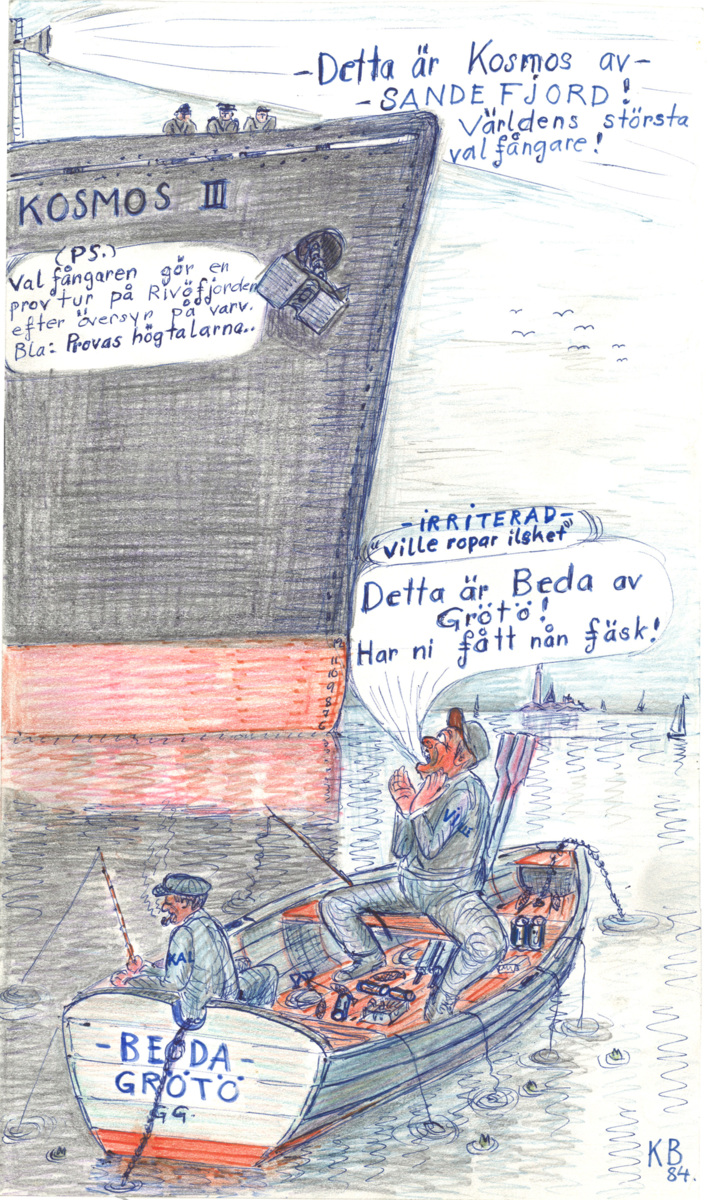 -Detta är Kosmos av-
-SANDEFJORD!
Världens största
valfångare!
KOSMOS III
(PS.)
Valfångaren gör en
provtur på Rivöfjorden
efter översyn på varv.
Bla: Provas högtalarna..
-iRRiTERAD-
"Ville ropar ilsket"
Detta är Beda av
Grötö!
Har ni fått nån fäsk!
11
10
9
8
7
6
VILLE
KAL
-BEDDA-
GRÖTÖ
GG.
KB
84.